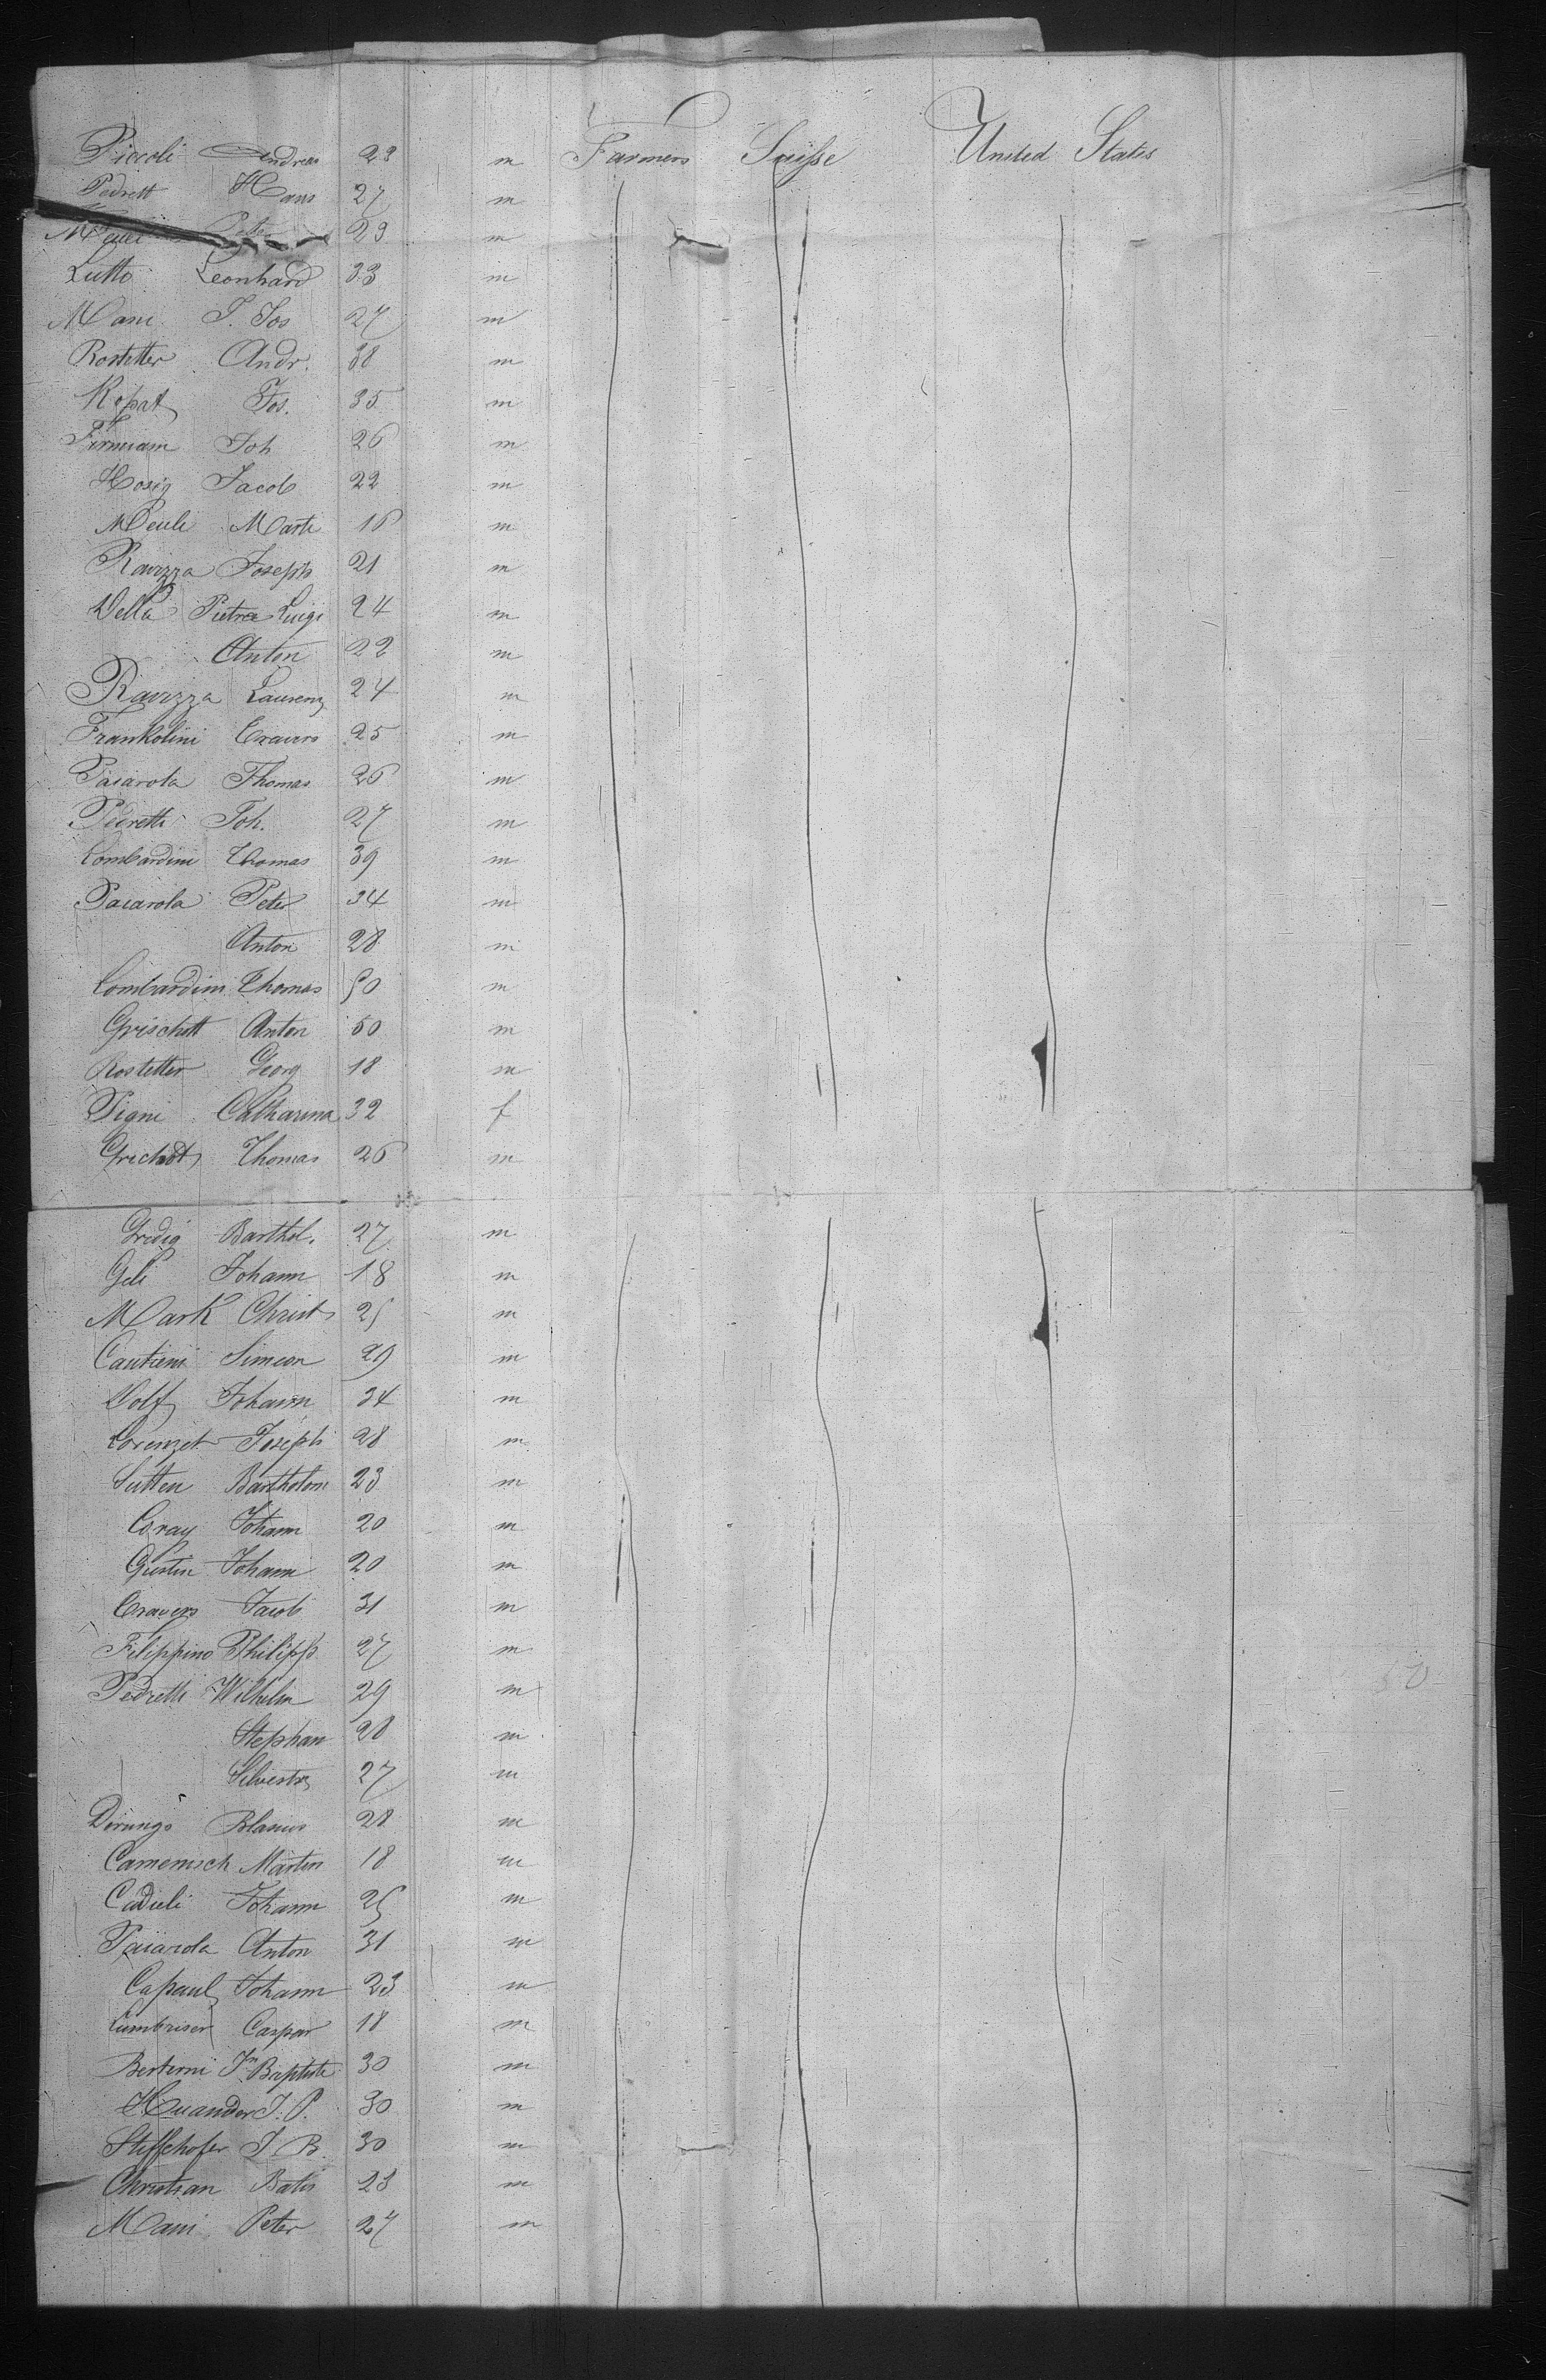 Piccoli Andreas 23 m Farmers Suisse United States
Pedrett Hans 27 m
Meuli Peter 23 m
Lutto Leonhard 33 m
Mani J. Jos 27 m
Rostetter Andr. 38 m
Kopat Jos. 35 m
Firmiam Joh 26 m
Hosig Jacob 22 m
Meuli Marti 16 m
Ravizza Joseph 21 m
Della Pietra Luigi 24 m
Anton 22 m
Ravizza Laurenz 24 m
Frankolini Travers 25 m
Paiarola Thomas 26 m
Pedretti Joh. 27 m
Lombardini Thomas 39 m
Paiarola Peter 34 m
Anton 28 m
Lombardini Thomas 50 m
Grischott Anton 50 m
Rostetter Georg 18 m
Pigni Catharina 32 f
Grichott Thomas 26 m
Gredig Barthol. 27 m
Geli Johann 18 m
Mark Christ 25 m
Cantieni Simeon 29 m
Wolf Johann 34 m
Lorenzet Joseph 28 m
Sutter Bartholom 23 m
Coray Johann 20 m
Giustin Johann 20 m
Travers Jacob 31 m
Filippino Philipp 27 m
Pedretti Wilhelm 29 m
Stephan 28 m
Silvestr 27 m
Derungs Blasius 28 m
Camenisch Martin 18 m
Cadieli Johann 25 m
Paiarola Anton 31 m
Capaul Johann 23 m
Lumbriser Caspar 18 m
Berturni Jn Baptiste 30 m
Huander J. P. 30 m
Stiffchofer J B. 30 m
Christian Batis 23 m
Mani Peter 27 m